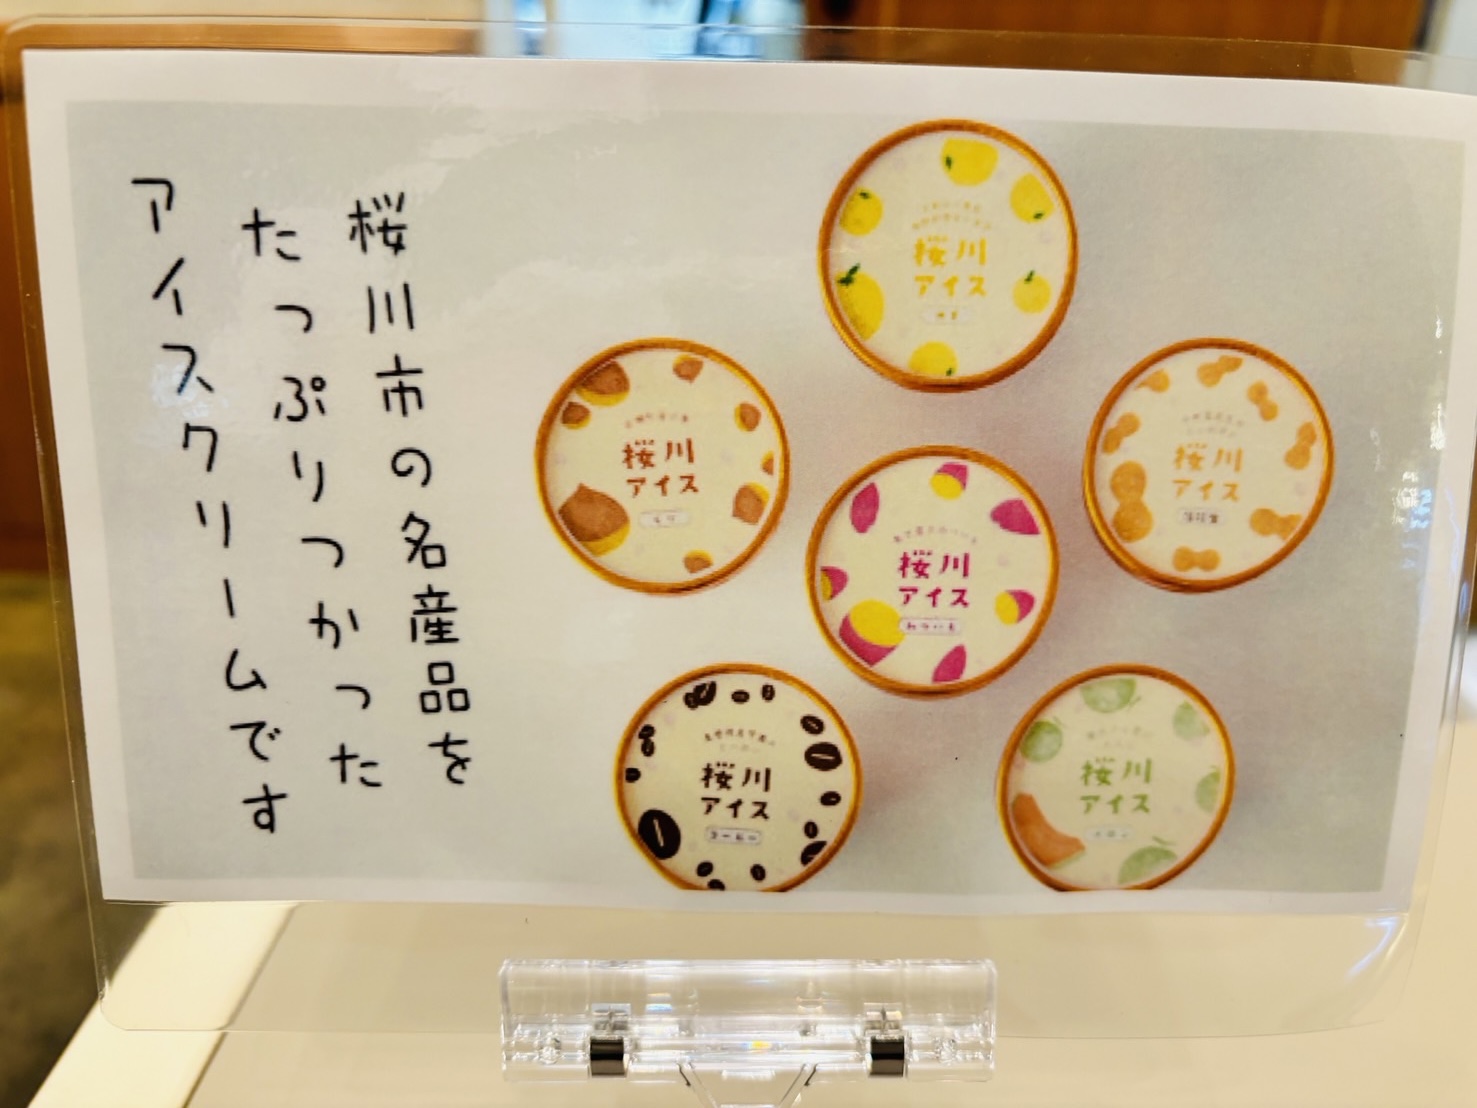 桜川市の名産品を
たっぷりつかった
アイスクリームです
桜川
アイス
桜川
アイス
桜川
アイス
桜川
アイス
桜川
アイス
コーヒー
桜川
アイス